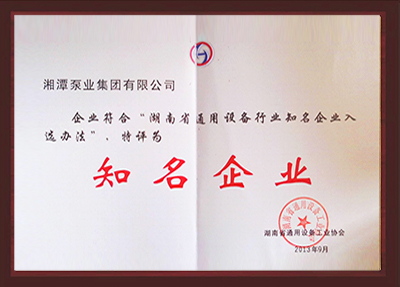 湘潭泵业集团有限公司
企业符合“湖南省通用设备行业知名企业入
选办法”、特评为
知名企业
湖南省通用设备工业协会
湖南省通用设备工业协会
2013年9月